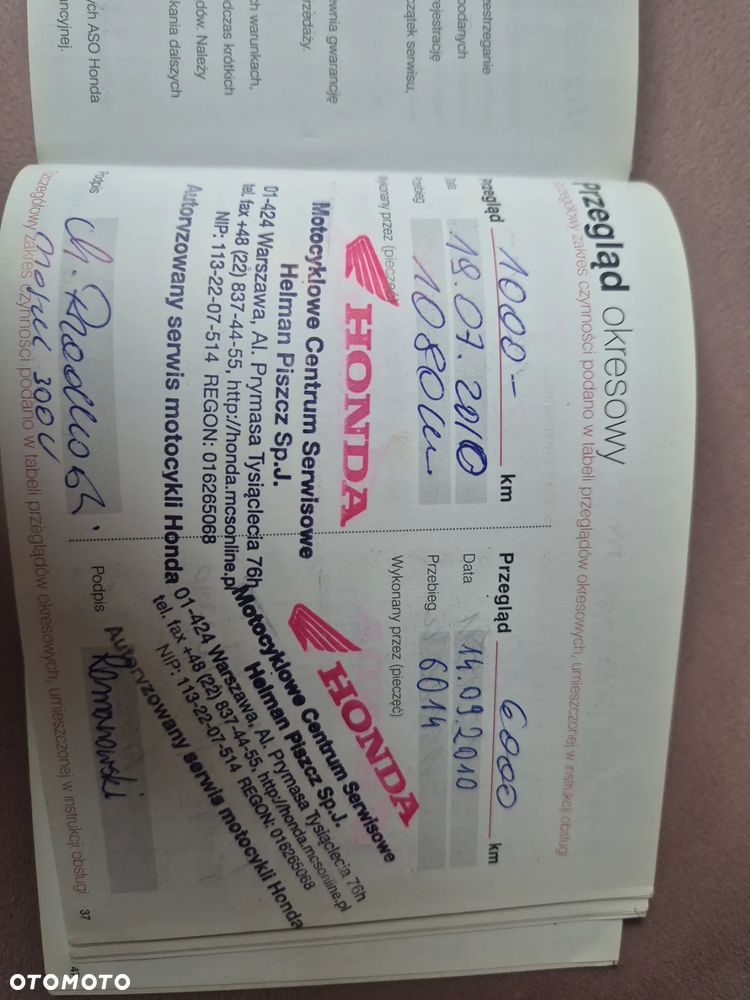 zestrzeganie
podanych
rejestrację
czątek serwisu,
wnia gwarancję
rzedaży.
h warunkach,
dczas krótkich
dów. Należy
kania dalszych
ych ASO Honda
ancyjnej.
Przegląd okresowy
Szczegółowy zakres czynności podano w tabeli przeglądów okresowych, umieszczonej w instrukcji obsługi
Przegląd 1000- km
Data 19.07.2010
Przebieg 1080 km.
Wykonany przez (pieczęć)
HONDA
Motocyklowe Centrum Serwisowe
Helman Piszcz Sp.J.
01-424 Warszawa, Al. Prymasa Tysiąclecia 76h
tel. fax +48 (22) 837-44-55, http://honda.mcsonline.pl
NIP: 113-22-07-514 REGON: 016265068
Autoryzowany serwis motocykli Honda
Podpis
300V
Przegląd 6000 km
Data 14.09.2010
Przebieg 6014
Wykonany przez (pieczęć)
HONDA
Motocyklowe Centrum Serwisowe
Helman Piszcz Sp.J.
01-424 Warszawa, Al. Prymasa Tysiąclecia 76h
tel. fax +48 (22) 837-44-55, http://honda.mcsonline.pl
NIP: 113-22-07-514 REGON: 016265068
Autoryzowany serwis motocykli Honda
Podpis Romanowski
Szczegółowy zakres czynności podano w tabeli przeglądów okresowych, umieszczonej w instrukcji obsługi
37
OTOMOTO